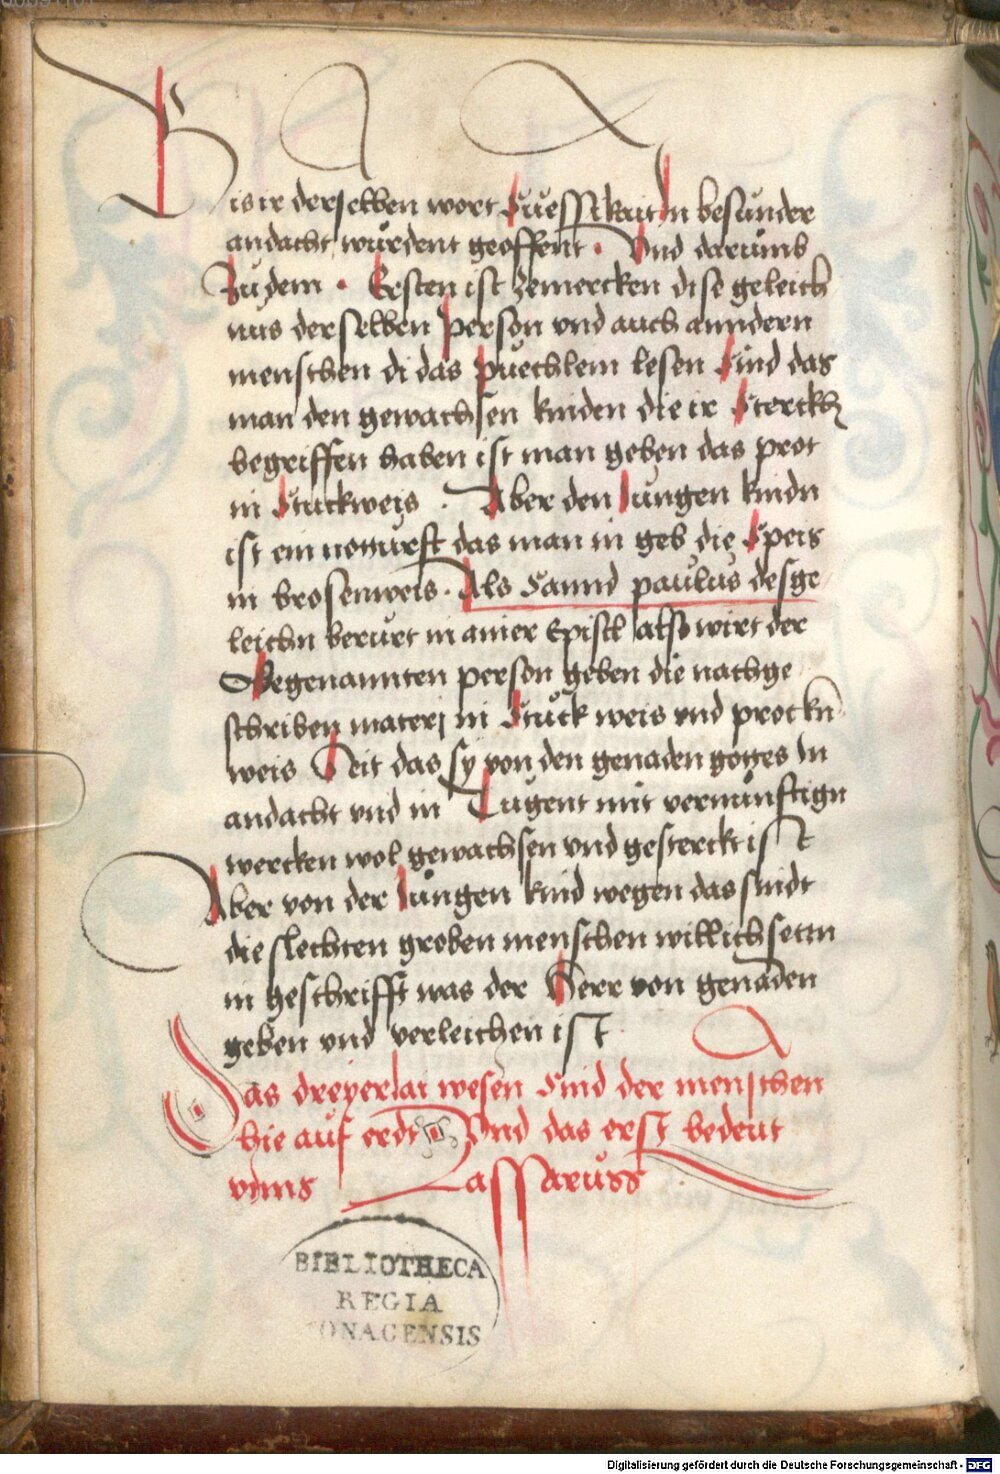 Bis ir derselben wort Suessikait In besunder
andacht wurdent geoffent · Und darumb
Zu dem · Ersten ist zemercken dise geleich
nus der selben person vnd auch anndern
menschen di das puechlem lesen Sind das
man den gewachsen kinden die ir Sterckh
begriffen haben ist man geben das prot
in Stuckweis · Aber den Jungen kindn
ist ein noturft das man in geb die Speis
in brosenweis · Als Sannd paulus desge
leichn berurt in ainer Epistl also wirt der
Obegenannten person geben die nachge
schriben materj in Stuck weis vnd prockn
weis Seit das sy von den genaden gottes In
andacht vnd in Tugent mit vernunftign
wercken wol gewachsen vnd gesterckt ist
Aber von der Jungen kind wegen das sindt
die slechten groben menschen willich setzn
in geschrifft was der Herr von genaden
geben vnd verleichen ist
Das dreyerlai wesen Sind der menschen
hie auf erdt Und das erst bedeut
vnns Lassaruss
BIBLIOTHECA
REGIA
MONACENSIS
Digitalisierung gefördert durch die Deutsche Forschungsgemeinschaft - DFG